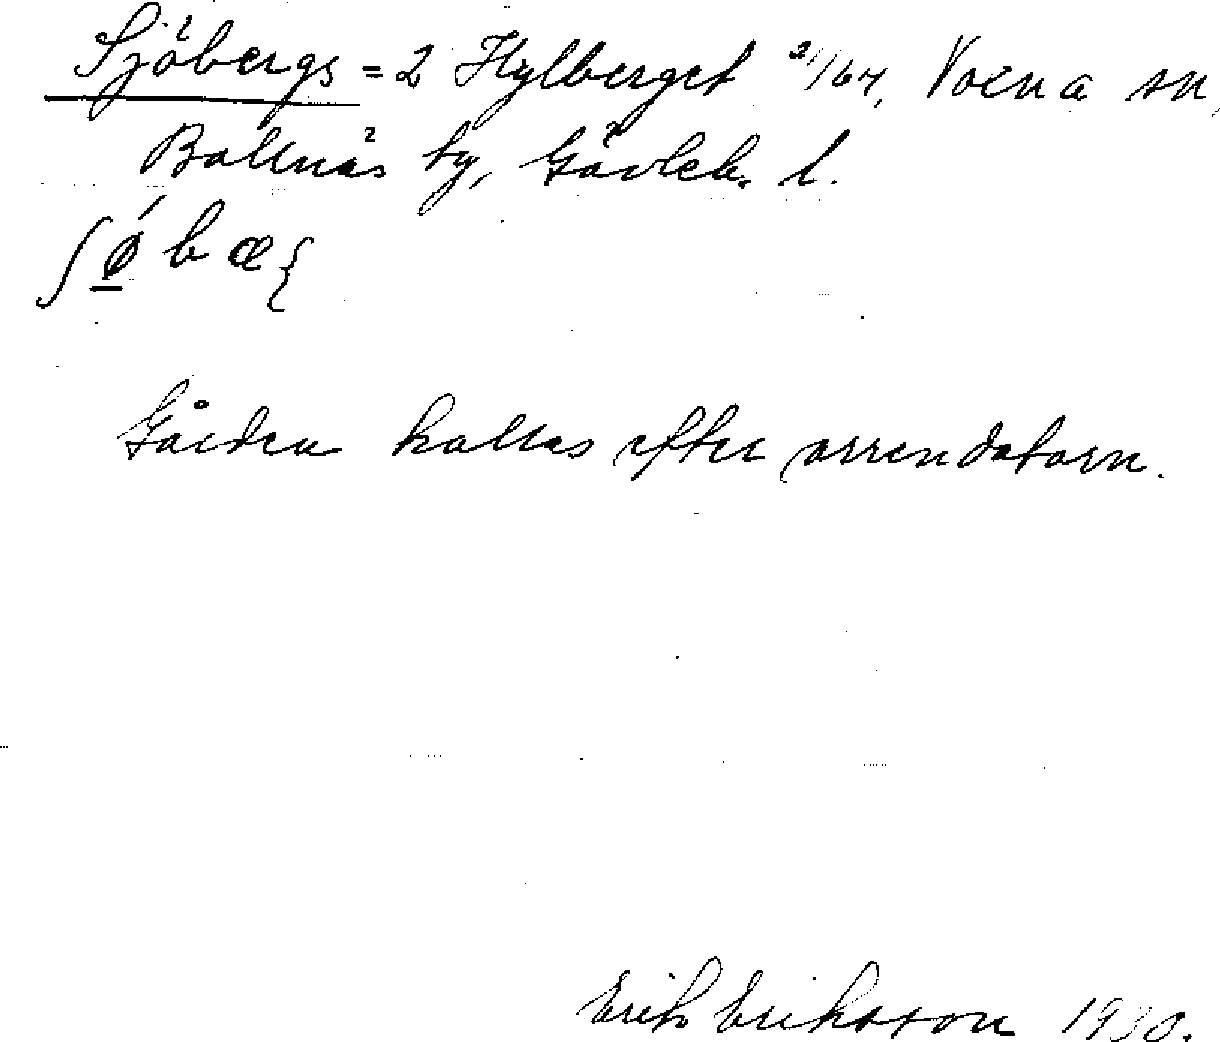 Sjöbergs = 2 Hylberget 21/64, Voxna sn,
Bollnäs tg, Gävleb. l.
ʃǿ̱bæ
Gården kallas efter arrendatorn.
Erik Eriksson 1930.